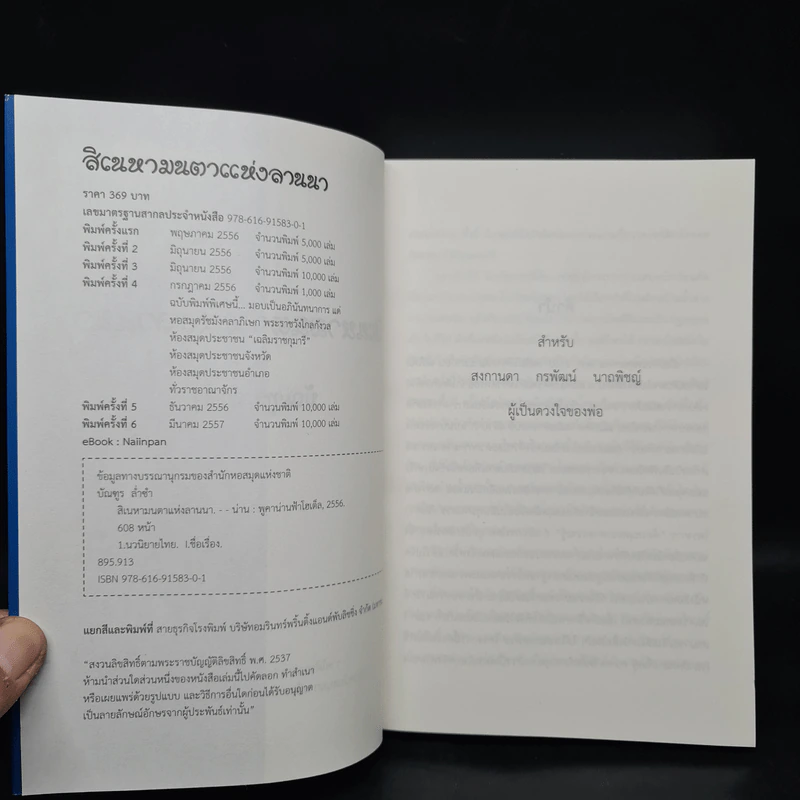 สิเนหามนตาแห่งลานนา
ราคา 369 บาท
เลขมาตรฐานสากลประจำหนังสือ 978-616-91583-0-1
พิมพ์ครั้งแรก พฤษภาคม 2556 จำนวนพิมพ์ 5,000 เล่ม
พิมพ์ครั้งที่ 2 มิถุนายน 2556 จำนวนพิมพ์ 5,000 เล่ม
พิมพ์ครั้งที่ 3 มิถุนายน 2556 จำนวนพิมพ์ 10,000 เล่ม
พิมพ์ครั้งที่ 4 กรกฎาคม 2556 จำนวนพิมพ์ 1,000 เล่ม
ฉบับพิมพ์พิเศษนี้... มอบเป็นอภินันทนาการ แด่
หอสมุดรัชมังคลาภิเษก พระราชวังไกลกังวล
ห้องสมุดประชาชน "เฉลิมราชกุมารี"
ห้องสมุดประชาชนจังหวัด
ห้องสมุดประชาชนอำเภอ
ทั่วราชอาณาจักร
พิมพ์ครั้งที่ 5 ธันวาคม 2556 จำนวนพิมพ์ 10,000 เล่ม
พิมพ์ครั้งที่ 6 มีนาคม 2557 จำนวนพิมพ์ 10,000 เล่ม
eBook : Naiinpan
ข้อมูลทางบรรณานุกรมของสำนักหอสมุดแห่งชาติ
บัณฑูร ล่ำซำ
สิเนหามนตาแห่งลานนา. - - น่าน : พูคาน่านฟ้าโฮเต็ล, 2556.
608 หน้า
1.นวนิยายไทย. I.ชื่อเรื่อง.
895.913
ISBN 978-616-91583-0-1
แยกสีและพิมพ์ที่ สายธุรกิจโรงพิมพ์ บริษัทอมรินทร์พริ้นติ้งแอนด์พับลิชชิ่ง จำกัด
"สงวนลิขสิทธิ์ตามพระราชบัญญัติลิขสิทธิ์ พ.ศ. 2537
ห้ามนำส่วนใดส่วนหนึ่งของหนังสือเล่มนี้ไปคัดลอก ทำสำเนา
หรือเผยแพร่ด้วยรูปแบบ และวิธีการอื่นใดก่อนได้รับอนุญาต
เป็นลายลักษณ์อักษรจากผู้ประพันธ์เท่านั้น"
สำหรับ
สงกานดา กรพัฒน์ นาถพิชญ์
ผู้เป็นดวงใจของพ่อ